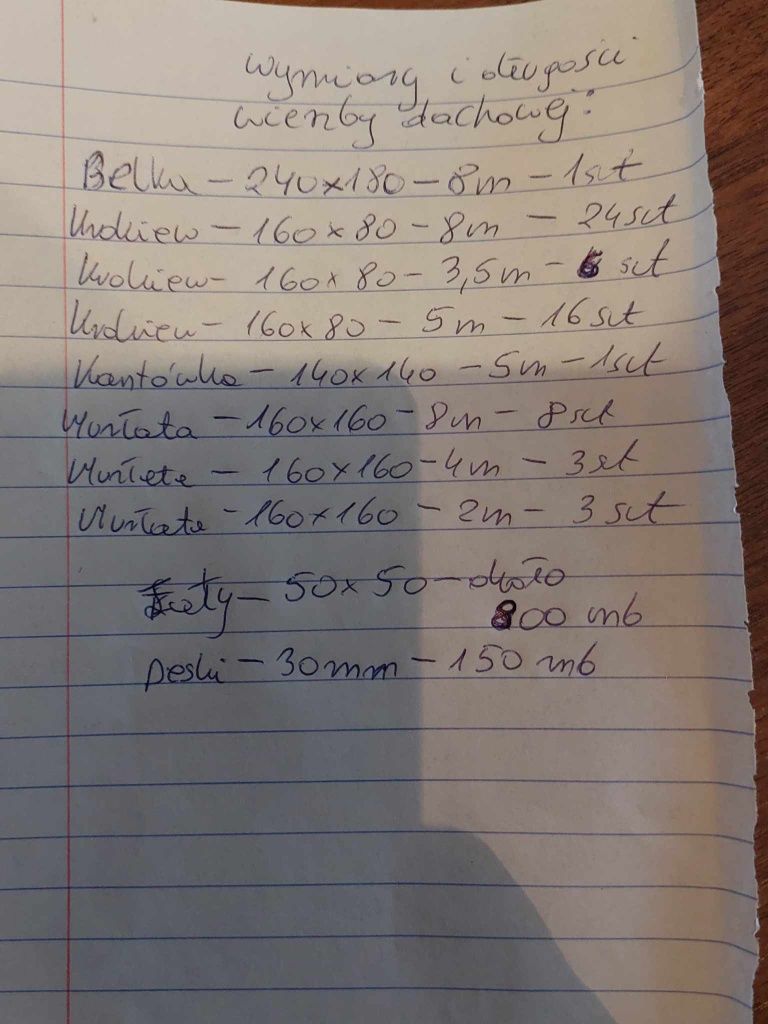 Wymiary i długości
więźby dachowej:
Belka - 240x180 - 8m - 1szt
Krokiew - 160x80 - 8m - 24szt
Krokiew - 160x80 - 3,5m - szt
Krokiew - 160x80 - 5m - 16szt
Kantówka - 140x140 - 5m - 1szt
Murłata - 160x160 - 8m - 8szt
Murłata - 160x160 - 4m - 3szt
Murłata - 160x160 - 2m - 3szt
Łaty - 50x50 - około
800 mb
Deski - 30mm - 150 mb